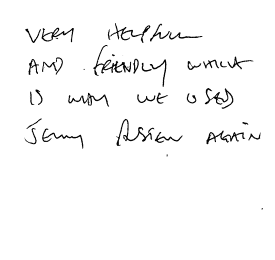 VERY HELPFUL
AND FRIENDLY WHICH
IS WHY WE USED
JENNY AGAIN